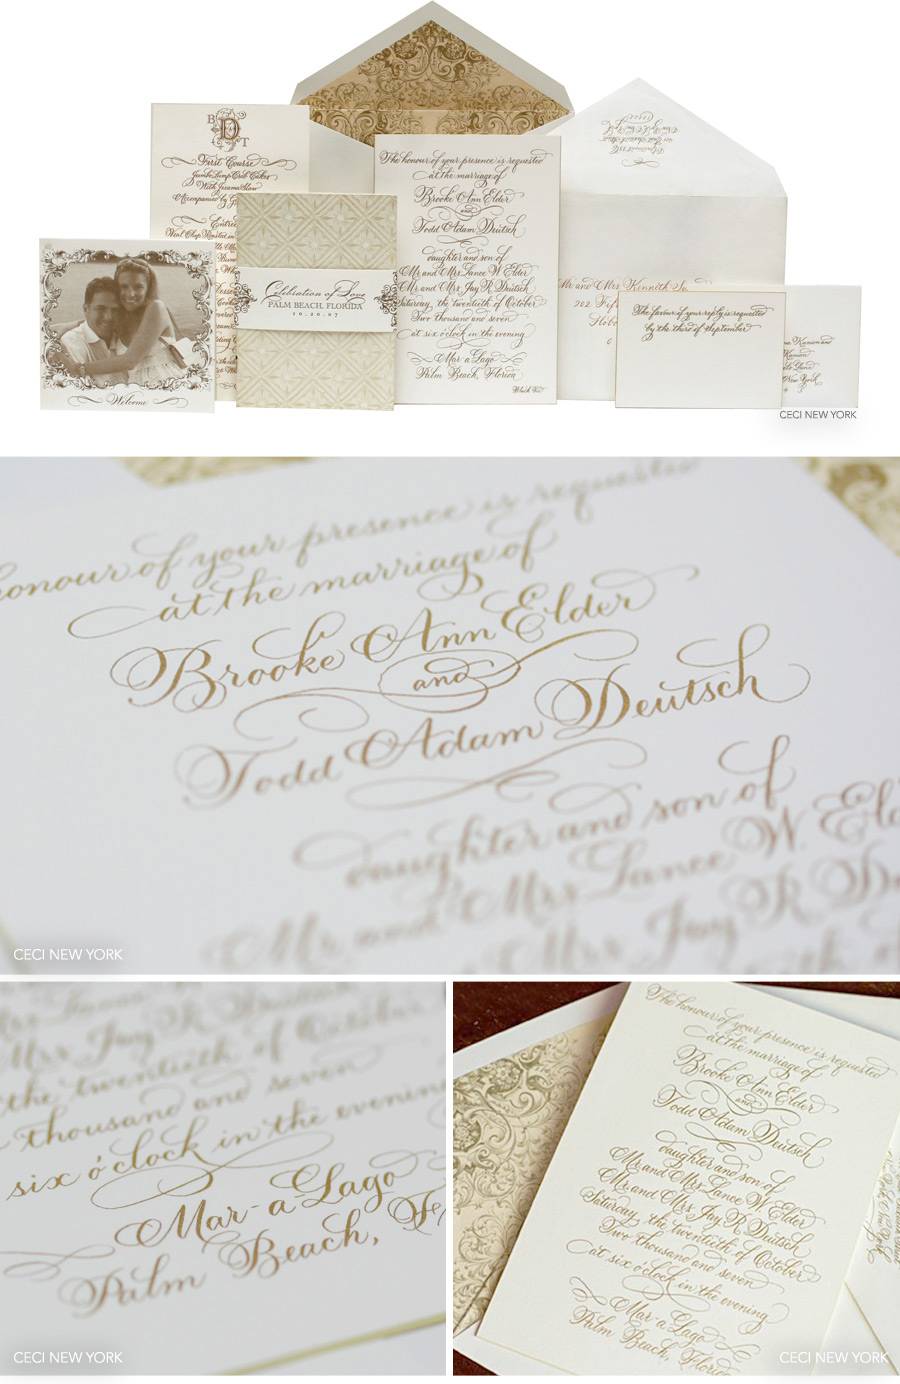 B D T
First Course
Jumbo Lump Crab Cakes
With Jicama Slaw
Accompanied by
Entrée
Welcome
Celebration of Love
PALM BEACH, FLORIDA
10.20.07
The honour of your presence is requested
at the marriage of
Brooke Ann Elder
and
Todd Adam Deutsch
daughter and son of
Mr and Mrs Lance W Elder
Mr and Mrs Jay R Deutsch
Saturday, the twentieth of October
Two thousand and seven
at six o'clock in the evening
Mar-a-Lago
Palm Beach, Florida
Black Tie
Mr and Mrs Kenneth
202
The favour of your reply is requested
by the third of September
New York
CECI NEW YORK
honour of your presence is requested
at the marriage of
Brooke Ann Elder
and
Todd Adam Deutsch
daughter and son of
Mr and Mrs Lance W. Eld
Mr and Mrs Jay R De
CECI NEW YORK
Mrs Jay R Deutsch
the twentieth of October
thousand and seven
six o'clock in the evening
Mar-a-Lago
Palm Beach, F
CECI NEW YORK
The honour of your presence is requested
at the marriage of
Brooke Ann Elder
and
Todd Adam Deutsch
daughter and son of
Mr and Mrs Lance W Elder
Mr and Mrs Jay R Deutsch
Saturday, the twentieth of October
Two thousand and seven
at six o'clock in the evening
Mar-a-Lago
Palm Beach, Florida
CECI NEW YORK